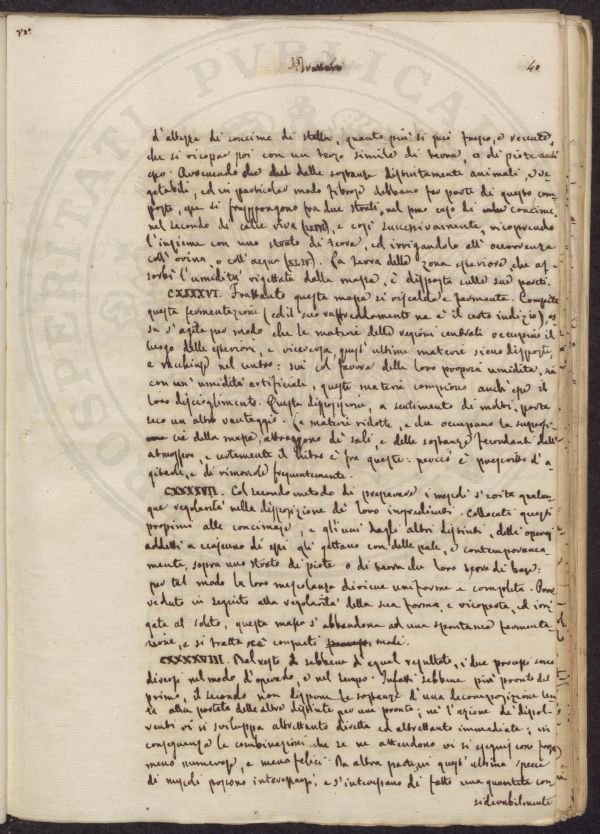 40
d'altezza di concime di stalla, quanto più si può fresco, e recente,
che si ricopre poi con un terzo simile di terra, o di piote anch'
esso. Avvicendo che delle sostanze distintamente animali, e ve-
getabili, ed in particolar modo fibrose debbano far parte di questo com-
posto, que si frappongono fra due strati, nel pmo caso di concime,
nel secondo di calce viva e così successivamente, ricoprendo
l'insieme con uno strato di terra, ed irrigandolo all'occorrenza
coll'orina, o coll'acqua La terra della zona esteriore, che as-
sorbì l'umidità rigettata dalla massa, è disposta sulle sue pareti.
CXXXXVI. Frattanto questa massa si riscalda e fermenta. Compita
questa fermentazione (ed il suo raffreddamento ne è il certo indizio), es-
sa s'agita per modo che le materie delle regioni centrali occupino il
luogo delle esteriori, e viceversa quest'ultime materie siano disposte,
e racchiuse nel centro: sia col favore della loro propria umidità, sia
con un'umidità artificiale, queste materie compiono anch'esse il
loro discioglimento. Questa disposizione, a sentimento di molti, porta
seco un altro vantaggio. Le materie ridotte, e che occupano la superfi-
cie della massa, attraggono de' sali, e delle sostanze fecondanti dell'
atmosfera, e certamente il nitro è fra queste: perciò è prescritto d'a-
gitarle, e di rimoverle frequentemente.
CXXXXVII. Col secondo metodo di preparare i miscoli s'evita qualun-
que regolarità nella disposizione de' loro ingredienti. Collocati questi
prossimi alle concimaje, e gli uni dagli altri distinti, delli operaj
addetti a ciascuno di essi gli gettano con delle pale, e contemporanea-
mente, sopra uno strato di piote o di terra che loro serve di base:
per tal modo la loro mescolanza diviene uniforme e completa. Prov-
veduto in seguito alla regolarità della sua forma, e ricoperta, ed irri-
gata al solito, questa massa s'abbandona ad una spontanea fermenta-
zione, e si tratta ne' consueti modi.
CXXXXVIII. Del resto sebbene di egual resultato, i due processi sono
diversi nel modo d'operare, e nel tempo. Infatti sebbene più pronto del
primo, il secondo non dispone le sostanze d'una decomposizione len-
ta alla portata delle altre distinte per una pronta: nè l'azione de' dissol-
venti vi si sviluppa altrettanto diretta ed altrettanto immediata; in
conseguenza le combinazioni che se ne attendono vi si eseguiscono forse
meno numerose, e meno felici. Da altra parte in quest'ultima specie
di miscoli possono interessarsi, e s'interessano di fatto una quantità con-
siderabilmente